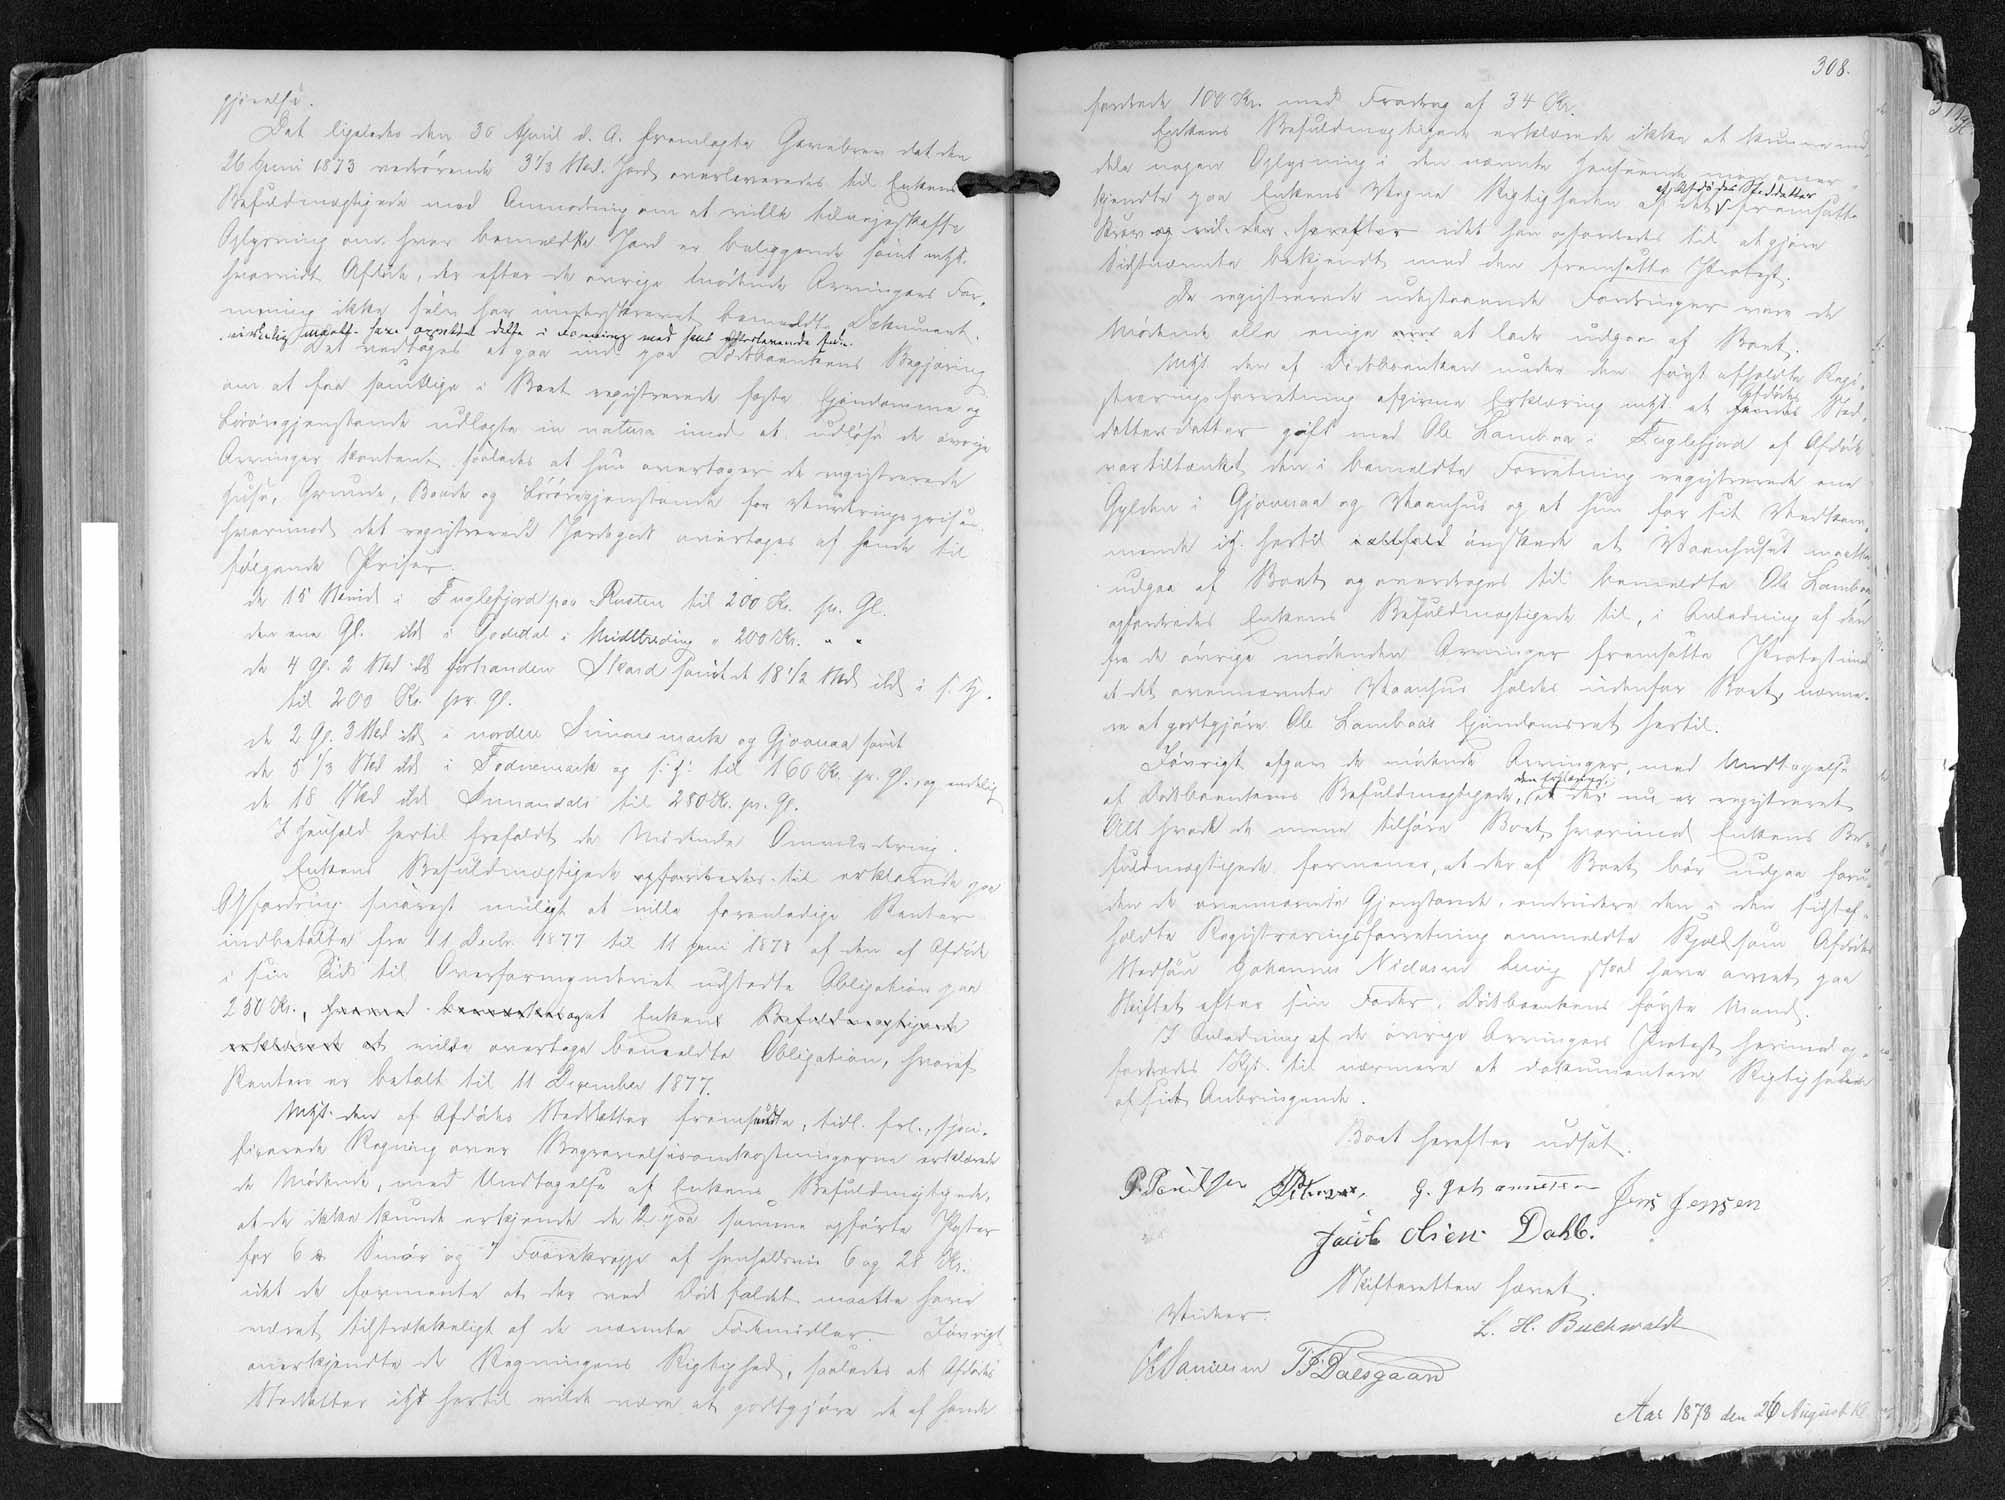 gjørelse.
Det ligeledes den 30 April d. A. fremlagte Gavebrev dat. den
26 Juni 1873 vedrørende 3 1/3 Skd. Jord overleveredes til Enkens
Befuldmægtigede med Anmodning om at ville tilvejeskaffe
Oplysning om hvor bemældte Jord er beliggende samt mht.
hvorvidt Afdøde, der efter de øvrige mødende Arvingers For-
mening ikke selv har underskrevet bemældte Dokument,
virkelig har oprettet dette i Forening med sin efterlevende
Det vedtoges at gaa ind paa Dødboenkens Begjæring
om at faa samtlige i Boet registrerede faste Ejendomme og
Løsøregjenstande udlagte in natura imod at udløse de øvrige
Arvinger kontant saaledes at hun overtager de registrerede
Huse, Grunde, Baade og Løsøregjenstande for Vurderingsprisen
hvorimod det registrerede Jordegods overtages af hende til
følgende Priser:
de 15 Skind i Fuglefjord paa Rusten til 200 Kr. pr. Gl.
den ene Gl. ibd i Godedal i Midltreding " 200 Kr. " "
de 4 Gl. 2 Skd ibd forhanden Skard samt de 18 1/2 Skd ibd i s. H.
til 200 Kr. pr. Gl.
de 2 Gl. 3 Skd ibd i nordere Simonemark og Gjøveraa samt
de 5 1/3 Skd ibd i Fodnemark og s. H. til 160 Kr. pr. Gl., og endelig
de 18 Skd ibd til 280 Kr. pr. Gl.
I Henhold hertil frafaldt de Mødende Omvurdering.
Enkens Befuldmægtigede opfordredes til erklærede paa
Opfordring snarest muligt at ville foranledige Renter
indbetalte fra 11 Decbr. 1877 til 11 Juni 1878 af den af Afdøde
i sin Tid til Overformynderiet udstedte Obligation paa
250 Kr., og at Enken
vilde overtage bemældte Obligation, hvoraf
Renten er betalt til 11 December 1877.
Mht. den af Afdødes Steddatter fremsendte, tidl. frl., speci-
ficerede Regning over Begravelsesomkostningerne erklærede
de Mødende, med Undtagelse af Enkens Befuldmægtigede,
at de ikke kunde erkjende de 2 paa samme opførte Poster
for 6 Smør og 7 Faarekroppe af henholdsvis 6 og 28 Kr.
idet de formente at der ved Dødsfaldet maatte have
været tilstrækkeligt af de nævnte Fødemidler. Iøvrigt
anerkjendte de Regningens Rigtighed, saaledes at Afdødes
Steddatter iht. hertil vilde være at godtgjøre de af hende
308.
fordrede 100 Kr. med Fradrag af 34 Kr.
Enkens Befuldmægtigede erklærede ikke at kunne med-
dele nogen Oplysning i den nævnte Henseende men aner-
kjendte paa Enkens Vegne Rigtigheden af det af Afdødes Steddatter fremsatte
Krav og vil. herefter idet han opfordredes til at gjøre
Sidstnævnte bekjendt med den fremsatte Protest.
De registrerede udestaaende Fordringer vare de
Mødende alle enige om at lade udgaa af Boet.
Mht. den af Dødboenken under den først afholdte Regi-
streringsforretning afgivne Erklæring mht. at Afdødes Sted-
datters datter gift med Ole Lambaa i Fuglefjord af Afdøde
var tiltænkt den i bemældte Forretning registrerede ene
Gylden i Gjøveraa og Vaanhus og at hun for sit Vedkom-
mende iht. hertil ønskede at Vaanhuset maatte
udgaa af Boet og overdrages til bemældte Ole Lambaa
opfordredes Enkens Befuldmægtigede til, i Anledning af den
fra de øvrige mødende Arvinger fremsatte Protest imod
at det ovennævnte Vaanhus holdes udenfor Boet, nærme-
re at godtgjøre Ole Lambaas Ejendomsret hertil.
Iøvrigt afgav de mødende Arvinger, med Undtagelse
af Dødboenkens Befuldmægtigede, den Erklæring, at der nu er registreret
Alt hvad de mene tilhøre Boet, hvorimod Enkens Be-
fuldmægtigede formener, at der af Boet bør udgaa foru-
den de ovennævnte Gjenstande, endvidere den i den sidst af-
holdte Registreringsforretning ommældte Kjæl som Afdødes
Stedsøn Johannes Niclasen skal have arvet paa
Skiftet efter sin Fader, Dødboenkens første Mand.
I Anledning af de øvrige Arvingers Protest herimod op-
fordredes til nærmere at dokumentere Rigtigheden
af sit Anbringende.
Boet herefter udsat.
P. Poulsen G. Johannesen Jens Jensen
Jacob Olsen Dahl.
Skifteretten hævet.
L. H. Buchwaldt
Vidner:
Danielsen T. F. Dalsgaard
Aar 1878 den 26 August Kl.